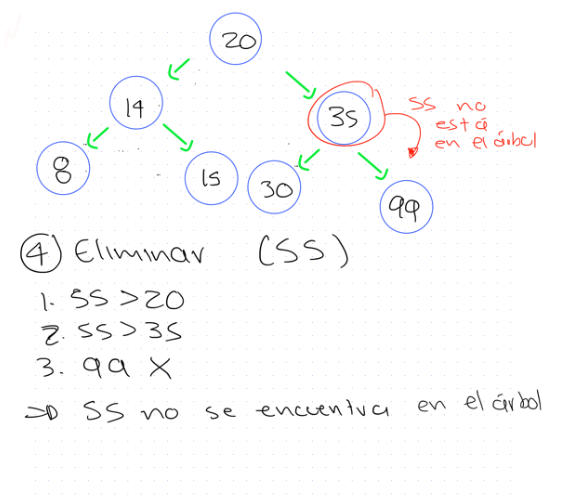 20
14
35
55 no
está
en el árbol
8
15
30
99
4 Eliminar (55)
1. 55 > 20
2. 55 > 35
3. 99 X
⇒ 55 no se encuentra en el árbol